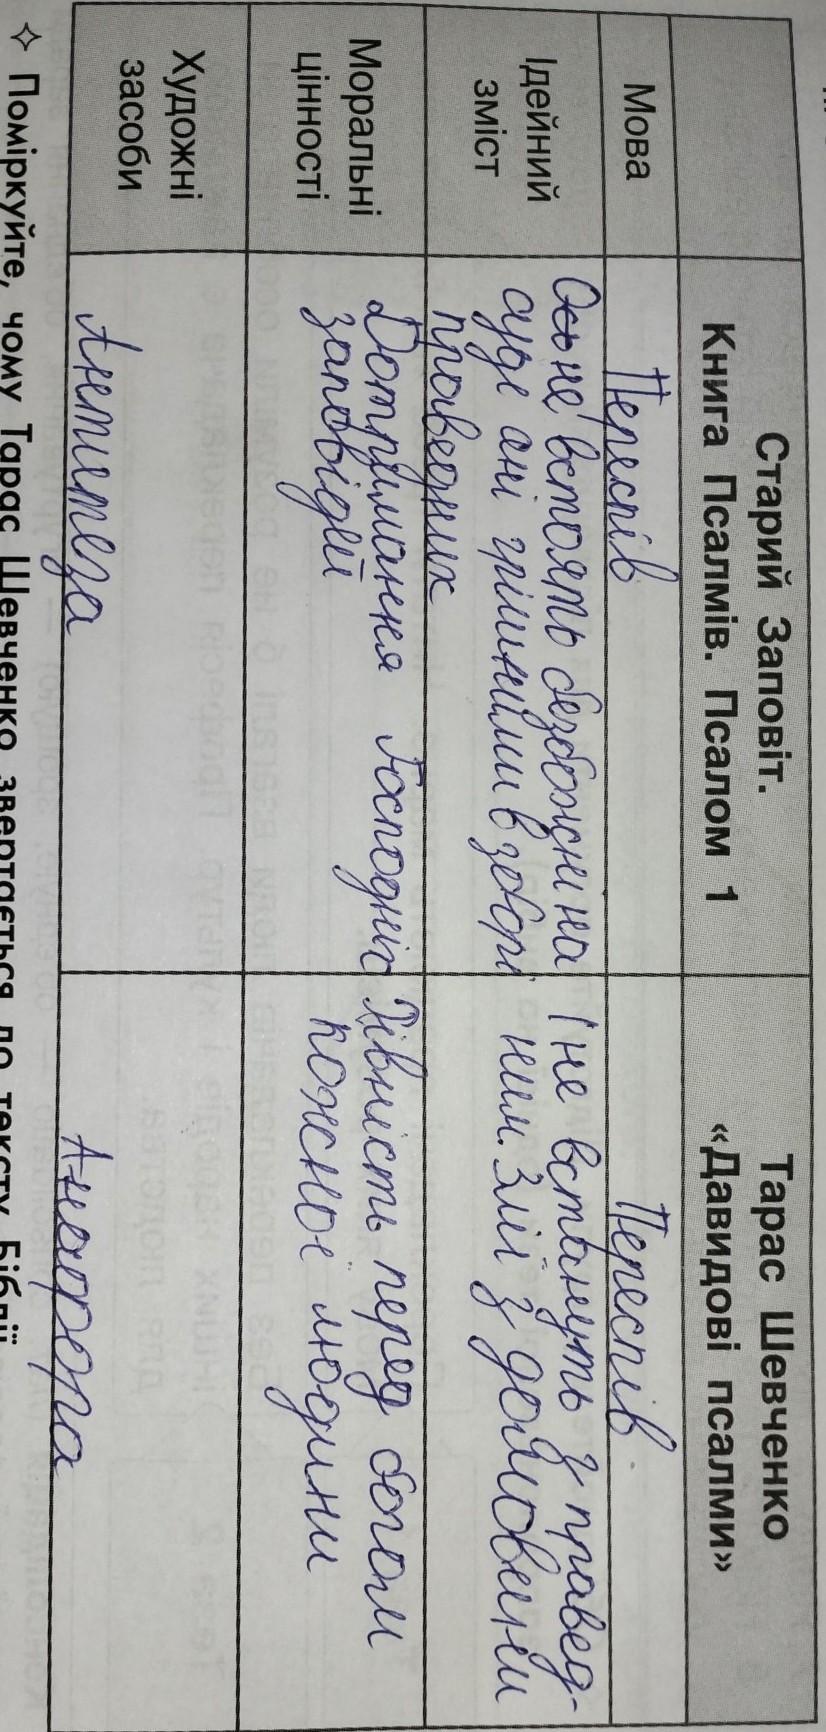 Старий Заповіт.
Книга Псалмів. Псалом 1
Тарас Шевченко
«Давидові псалми»
Мова
Переспів
Переспів.
Ідейний
зміст
Ось не встоять безбожні на
суде ані грішними в зборі
праведних
І не встануть з правед-
ним. Злиї з домовини
Моральні
цінності
Дотримання Господніх
заповідей
Рівність перед богом
кожної людини
Художні
засоби
Антитеза
Анафора
✧ Поміркуйте, чому Тарас Шевченко звертається до тексту Біблії